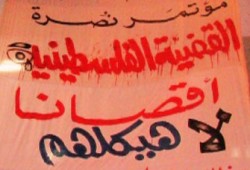 مؤتمر نصرة
القضية الفلسطينية
أقصانا
لا هيكلهم